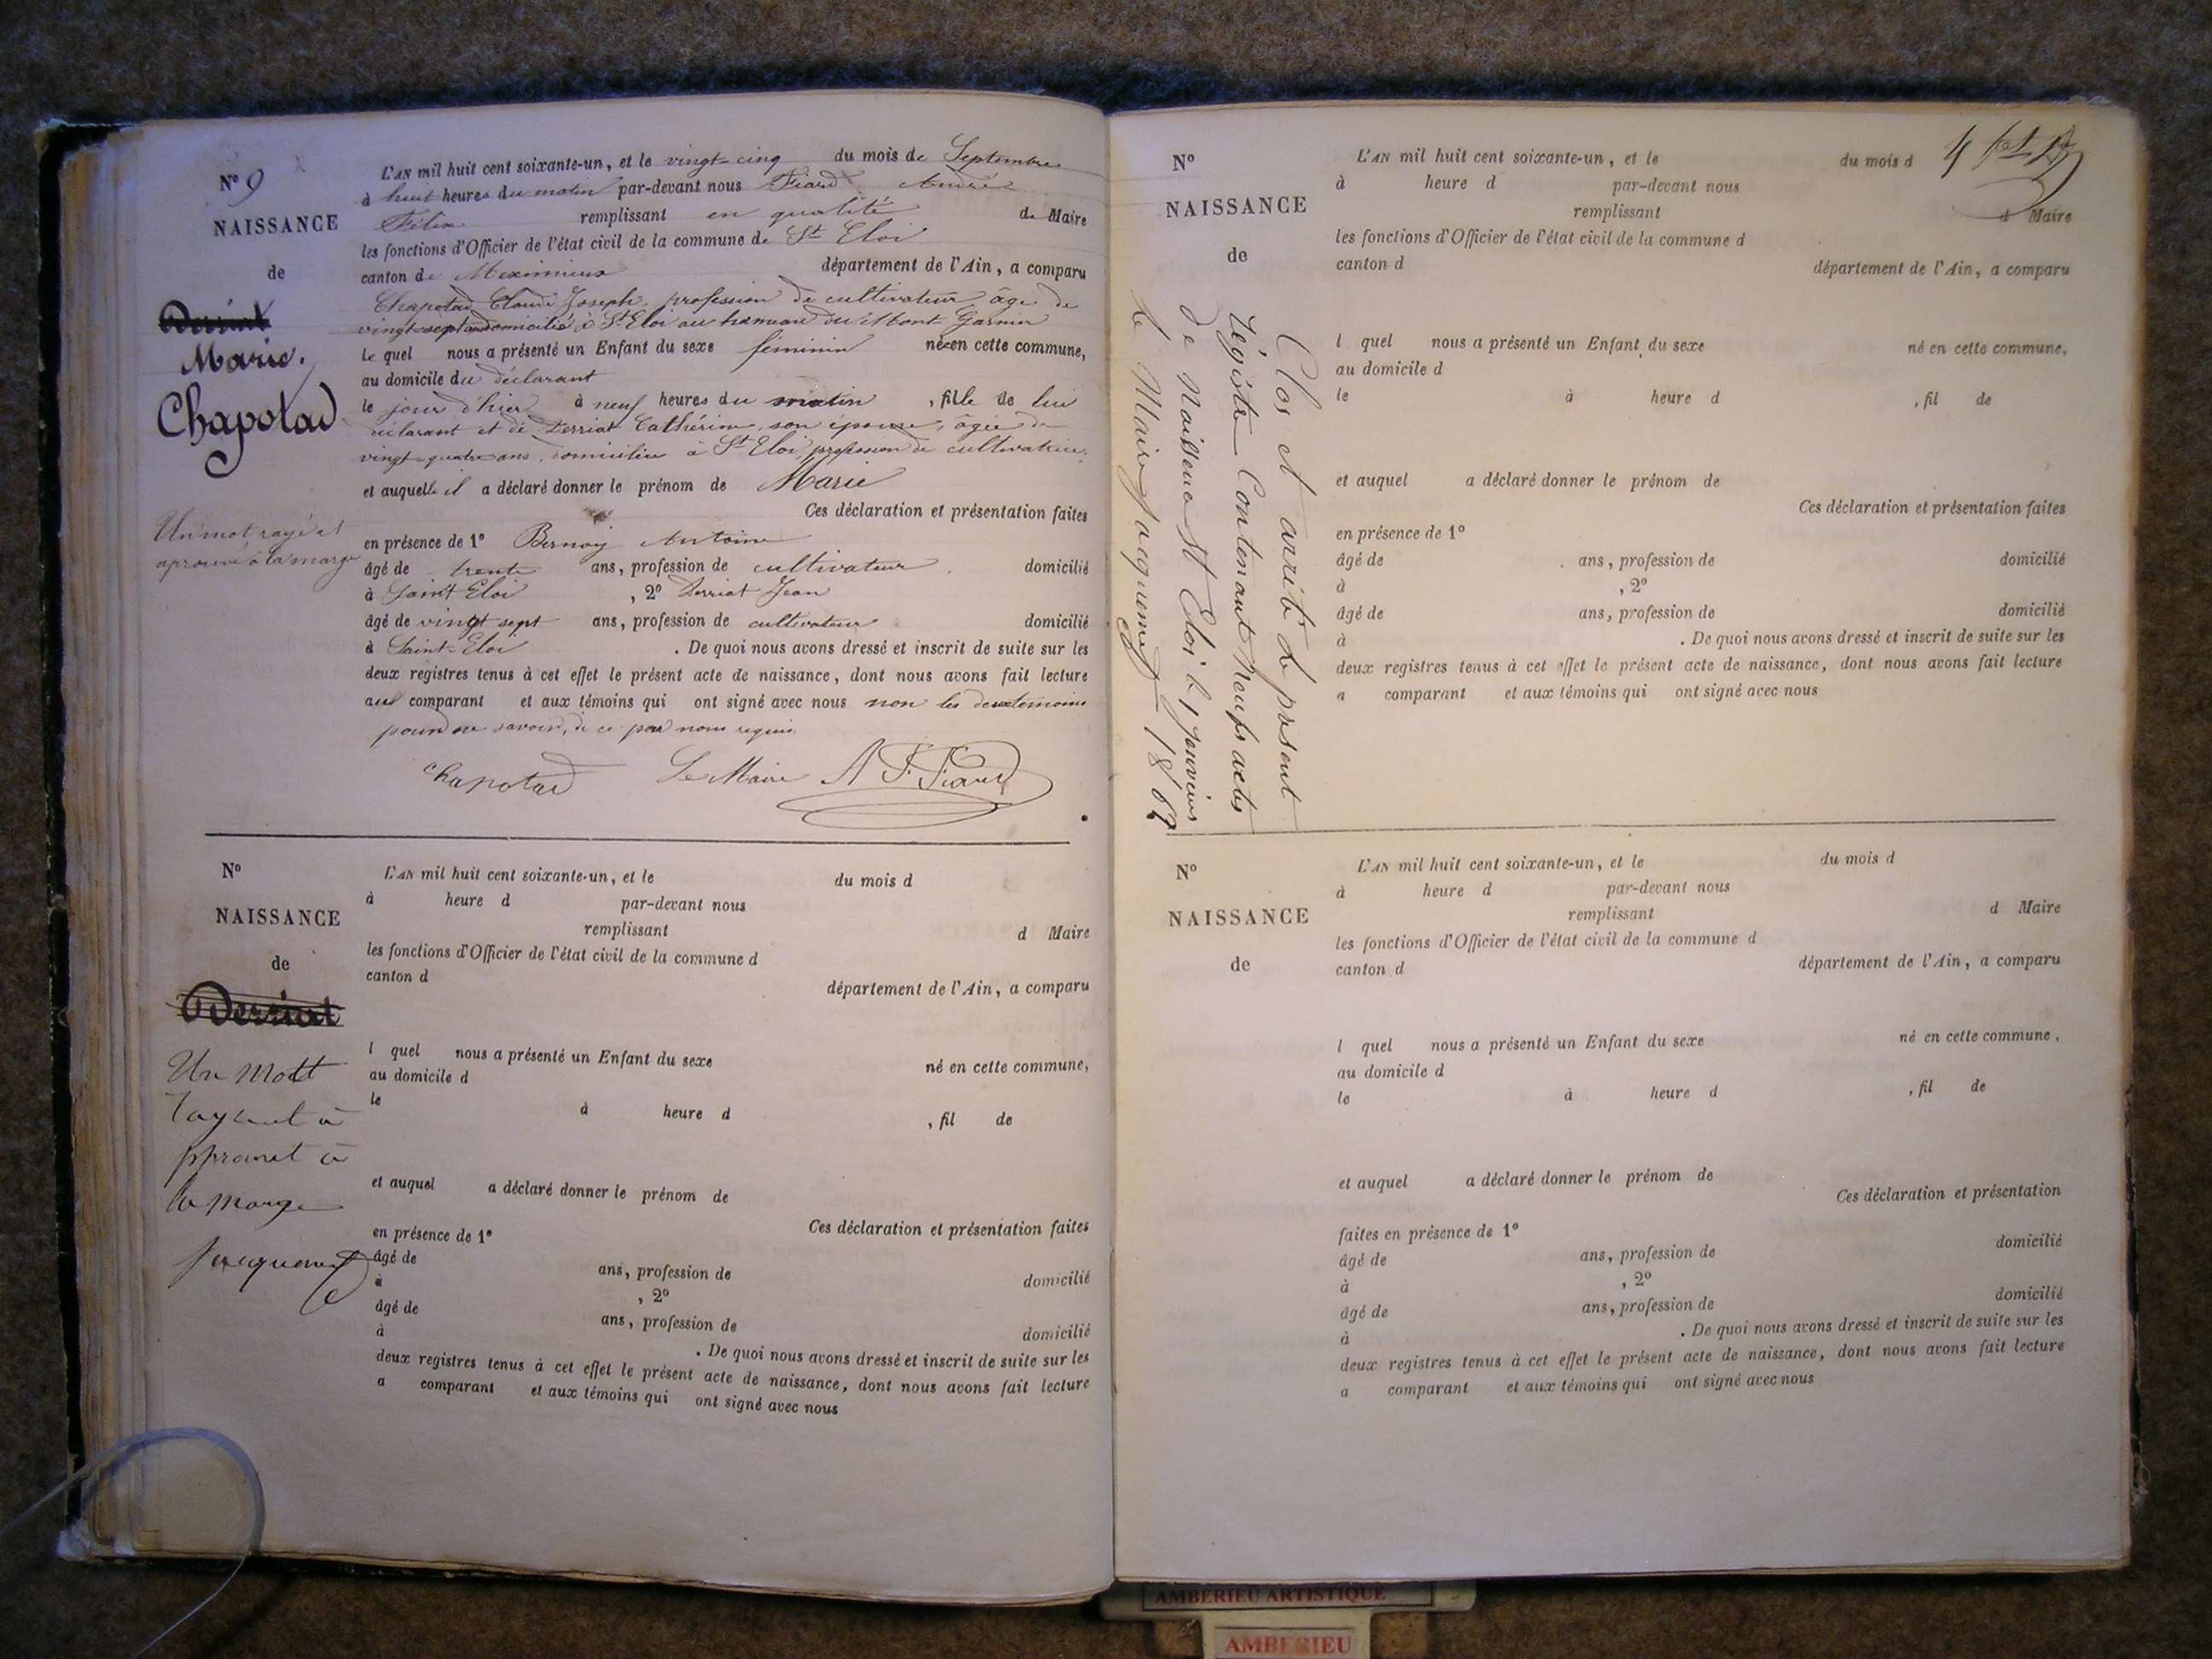 N° 9
NAISSANCE
de
Derriat
Marie.
Chapotad
Un mot rayé et
aprouvé à la marge
L'AN mil huit cent soixante-un, et le vingt-cinq du mois de Septembre
à huit heures du matin par-devant nous Fiard André
Félix remplissant en qualité de Maire
les fonctions d'Officier de l'état civil de la commune de St Eloi
canton de Meximieux département de l'Ain, a comparu
Chapotad Claude Joseph, profession de cultivateur âgé de
vingt-sept ans domicilié à St Eloi au hameau du Mont Garnier
le quel nous a présenté un Enfant du sexe féminin née en cette commune,
au domicile du déclarant
le jour d'hier à neuf heures du matin, fille de lui
déclarant et de Derriat Cathérine, son épouse, âgée de
vingt-quatre ans, domiciliée à St Eloi, profession de cultivatrice,
et auquelle il a déclaré donner le prénom de Marie
Ces déclaration et présentation faites
en présence de 1° Bernoy Antoine
âgé de trente ans, profession de cultivateur domicilié
à Saint Eloi, 2° Derriat Jean
âgé de vingt sept ans, profession de cultivateur domicilié
à Saint-Eloi. De quoi nous avons dressé et inscrit de suite sur les
deux registres tenus à cet effet le présent acte de naissance, dont nous avons fait lecture
au comparant et aux témoins qui ont signé avec nous non les deux témoins
pour ne savoir, de ce par nous requis
Chapotad Le Maire A F Fiard
N°
NAISSANCE
de
Derriat
Un Mott
à
à
la marge
Jacquemet
L'AN mil huit cent soixante-un, et le du mois d
à heure d par-devant nous
remplissant d Maire
les fonctions d'Officier de l'état civil de la commune d
canton d département de l'Ain, a comparu
l quel nous a présenté un Enfant du sexe né en cette commune,
au domicile d
le à heure d, fil de
et auquel a déclaré donner le prénom de
Ces déclaration et présentation faites
en présence de 1°
âgé de ans, profession de domicilié
à, 2°
âgé de ans, profession de domicilié
à. De quoi nous avons dressé et inscrit de suite sur les
deux registres tenus à cet effet le présent acte de naissance, dont nous avons fait lecture
a comparant et aux témoins qui ont signé avec nous
4
N°
NAISSANCE
de
Clos et arrêté le présent
Régistre Contenant Neufs actes
de Naissence St Eloi le 1 janvier
Le Maire Jacquemet 1862
L'AN mil huit cent soixante-un, et le du mois d
à heure d par-devant nous
remplissant d Maire
les fonctions d'Officier de l'état civil de la commune d
canton d département de l'Ain, a comparu
l quel nous a présenté un Enfant du sexe né en cette commune,
au domicile d
le à heure d, fil de
et auquel a déclaré donner le prénom de
Ces déclaration et présentation faites
en présence de 1°
âgé de ans, profession de domicilié
à, 2°
âgé de ans, profession de domicilié
à. De quoi nous avons dressé et inscrit de suite sur les
deux registres tenus à cet effet le présent acte de naissance, dont nous avons fait lecture
a comparant et aux témoins qui ont signé avec nous
N°
NAISSANCE
de
L'AN mil huit cent soixante-un, et le du mois d
à heure d par-devant nous
remplissant d Maire
les fonctions d'Officier de l'état civil de la commune d
canton d département de l'Ain, a comparu
l quel nous a présenté un Enfant du sexe né en cette commune,
au domicile d
le à heure d, fil de
et auquel a déclaré donner le prénom de
Ces déclaration et présentation
faites en présence de 1°
âgé de ans, profession de domicilié
à, 2°
âgé de ans, profession de domicilié
à. De quoi nous avons dressé et inscrit de suite sur les
deux registres tenus à cet effet le présent acte de naissance, dont nous avons fait lecture
a comparant et aux témoins qui ont signé avec nous
AMBERIEU ARTISTIQUE
AMBERIEU